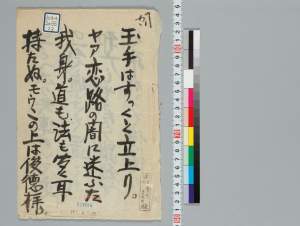 玉手はすっくと立上り。
ヤア恋路の闇に迷ふた
我身。道も法も聞く耳
持たぬ。モウこの上は俊徳様。